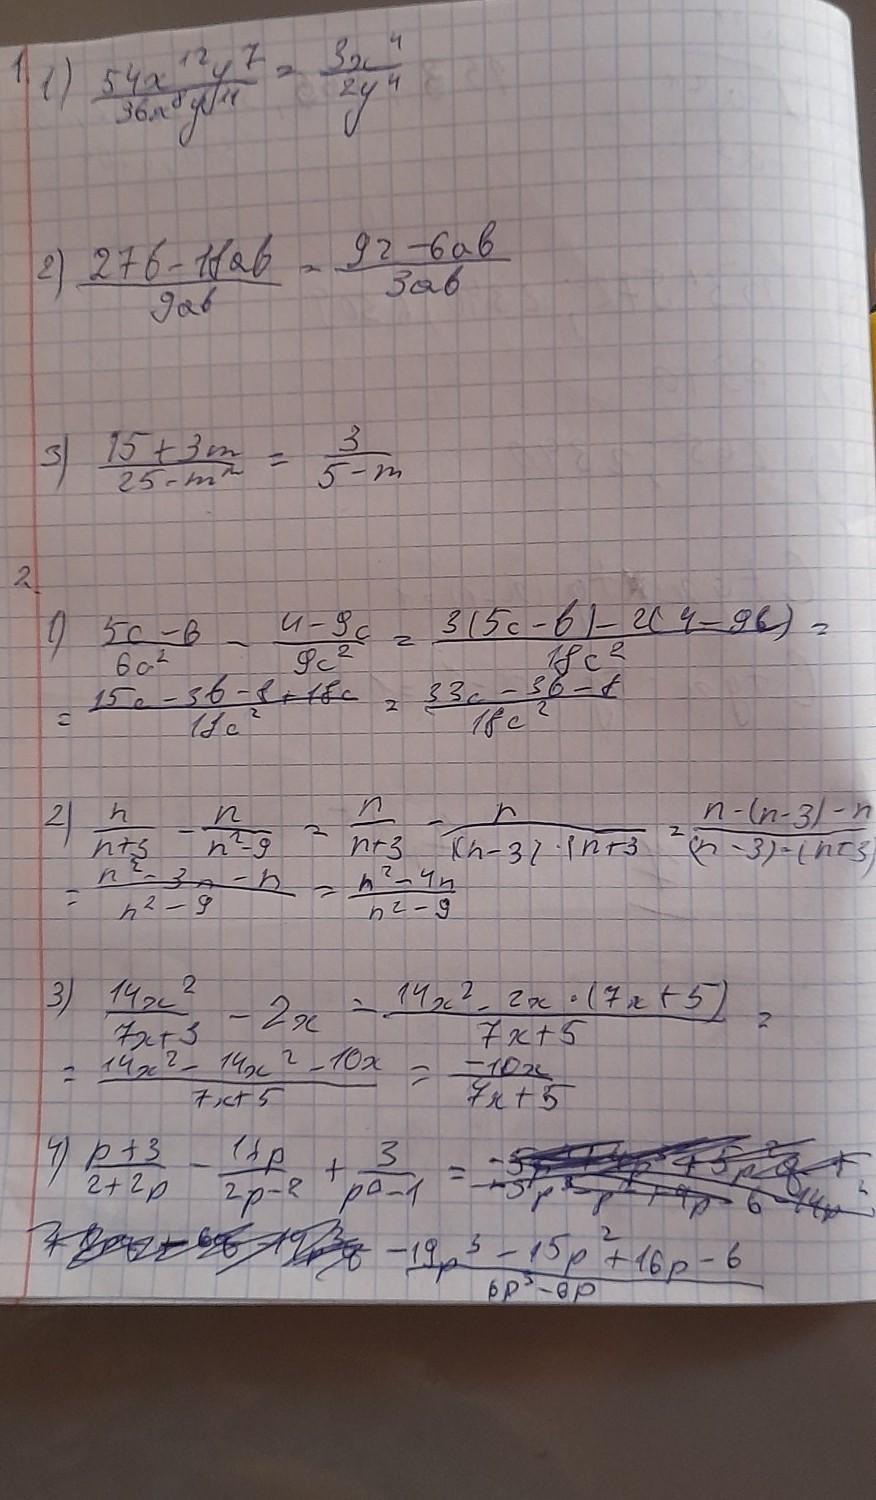 1. 1) 54x¹²y⁷/36x⁸y¹¹ = 3x⁴/2y⁴
2) 27b - 18ab/9ab = 9z - 6ab/3ab
3) 15 + 3m/25 - m² = 3/5 - m
2.
1) 5c - b/6c² - 4 - 9c/9c² = 3(5c - b) - 2(4 - 9c)/18c² =
= 15c - 3b - 8 + 18c/18c² = 33c - 3b - 8/18c²
2) n/n+3 - n/n²-9 = n/n+3 - n/(n-3)·(n+3 = n·(n-3) - n/(n-3)·(n+3)
= n² - 3n - n/n² - 9 = n² - 4n/n² - 9
3) 14x²/7x+5 - 2x = 14x² - 2x·(7x+5)/7x+5 =
= 14x² - 14x² - 10x/7x+5 = -10x/7x+5
4) p+3/2+2p - /2p-2 + 3/p²-1 =
-19p³ - 15p² + 16p - 6/6p³-6p